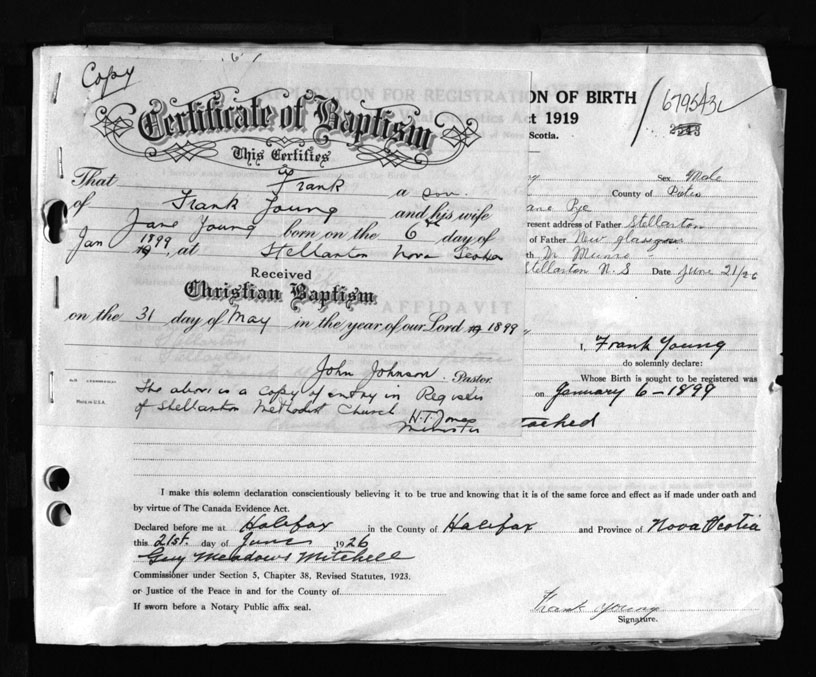 Copy
Certificate of Baptism
This Certifies
That Frank a son
of Frank Young and his wife
Jane Young born on the 6th day of
Jan 1899, at Stellarton Nova Scotia
Received
Christian Baptism
on the 31 day of May in the year of our Lord 1899
John Johnson Pastor.
The above is a copy of entry in Register
of Stellarton Methodist Church H.T. Jones
Minister
MADE IN U.S.A.
ON OF BIRTH
t 1919
Scotia.
Sex Male
County of Pictou
ane Pye
resent address of Father Stellarton
of Father New Glasgow
th Dr Munro
Stellarton N.S Date June 21/26
I, Frank Young
do solemnly declare:
Whose Birth is sought to be registered was
on January 6-1899
ached
I make this solemn declaration conscientiously believing it to be true and knowing that it is of the same force and effect as if made under oath and
by virtue of The Canada Evidence Act.
Declared before me at Halifax in the County of Halifax and Province of Nova Scotia
this 21st. day of June 1926
Guy Meadows Mitchell
Commissioner under Section 5, Chapter 38, Revised Statutes, 1923.
or Justice of the Peace in and for the County of
If sworn before a Notary Public affix seal.
Frank Young
Signature.